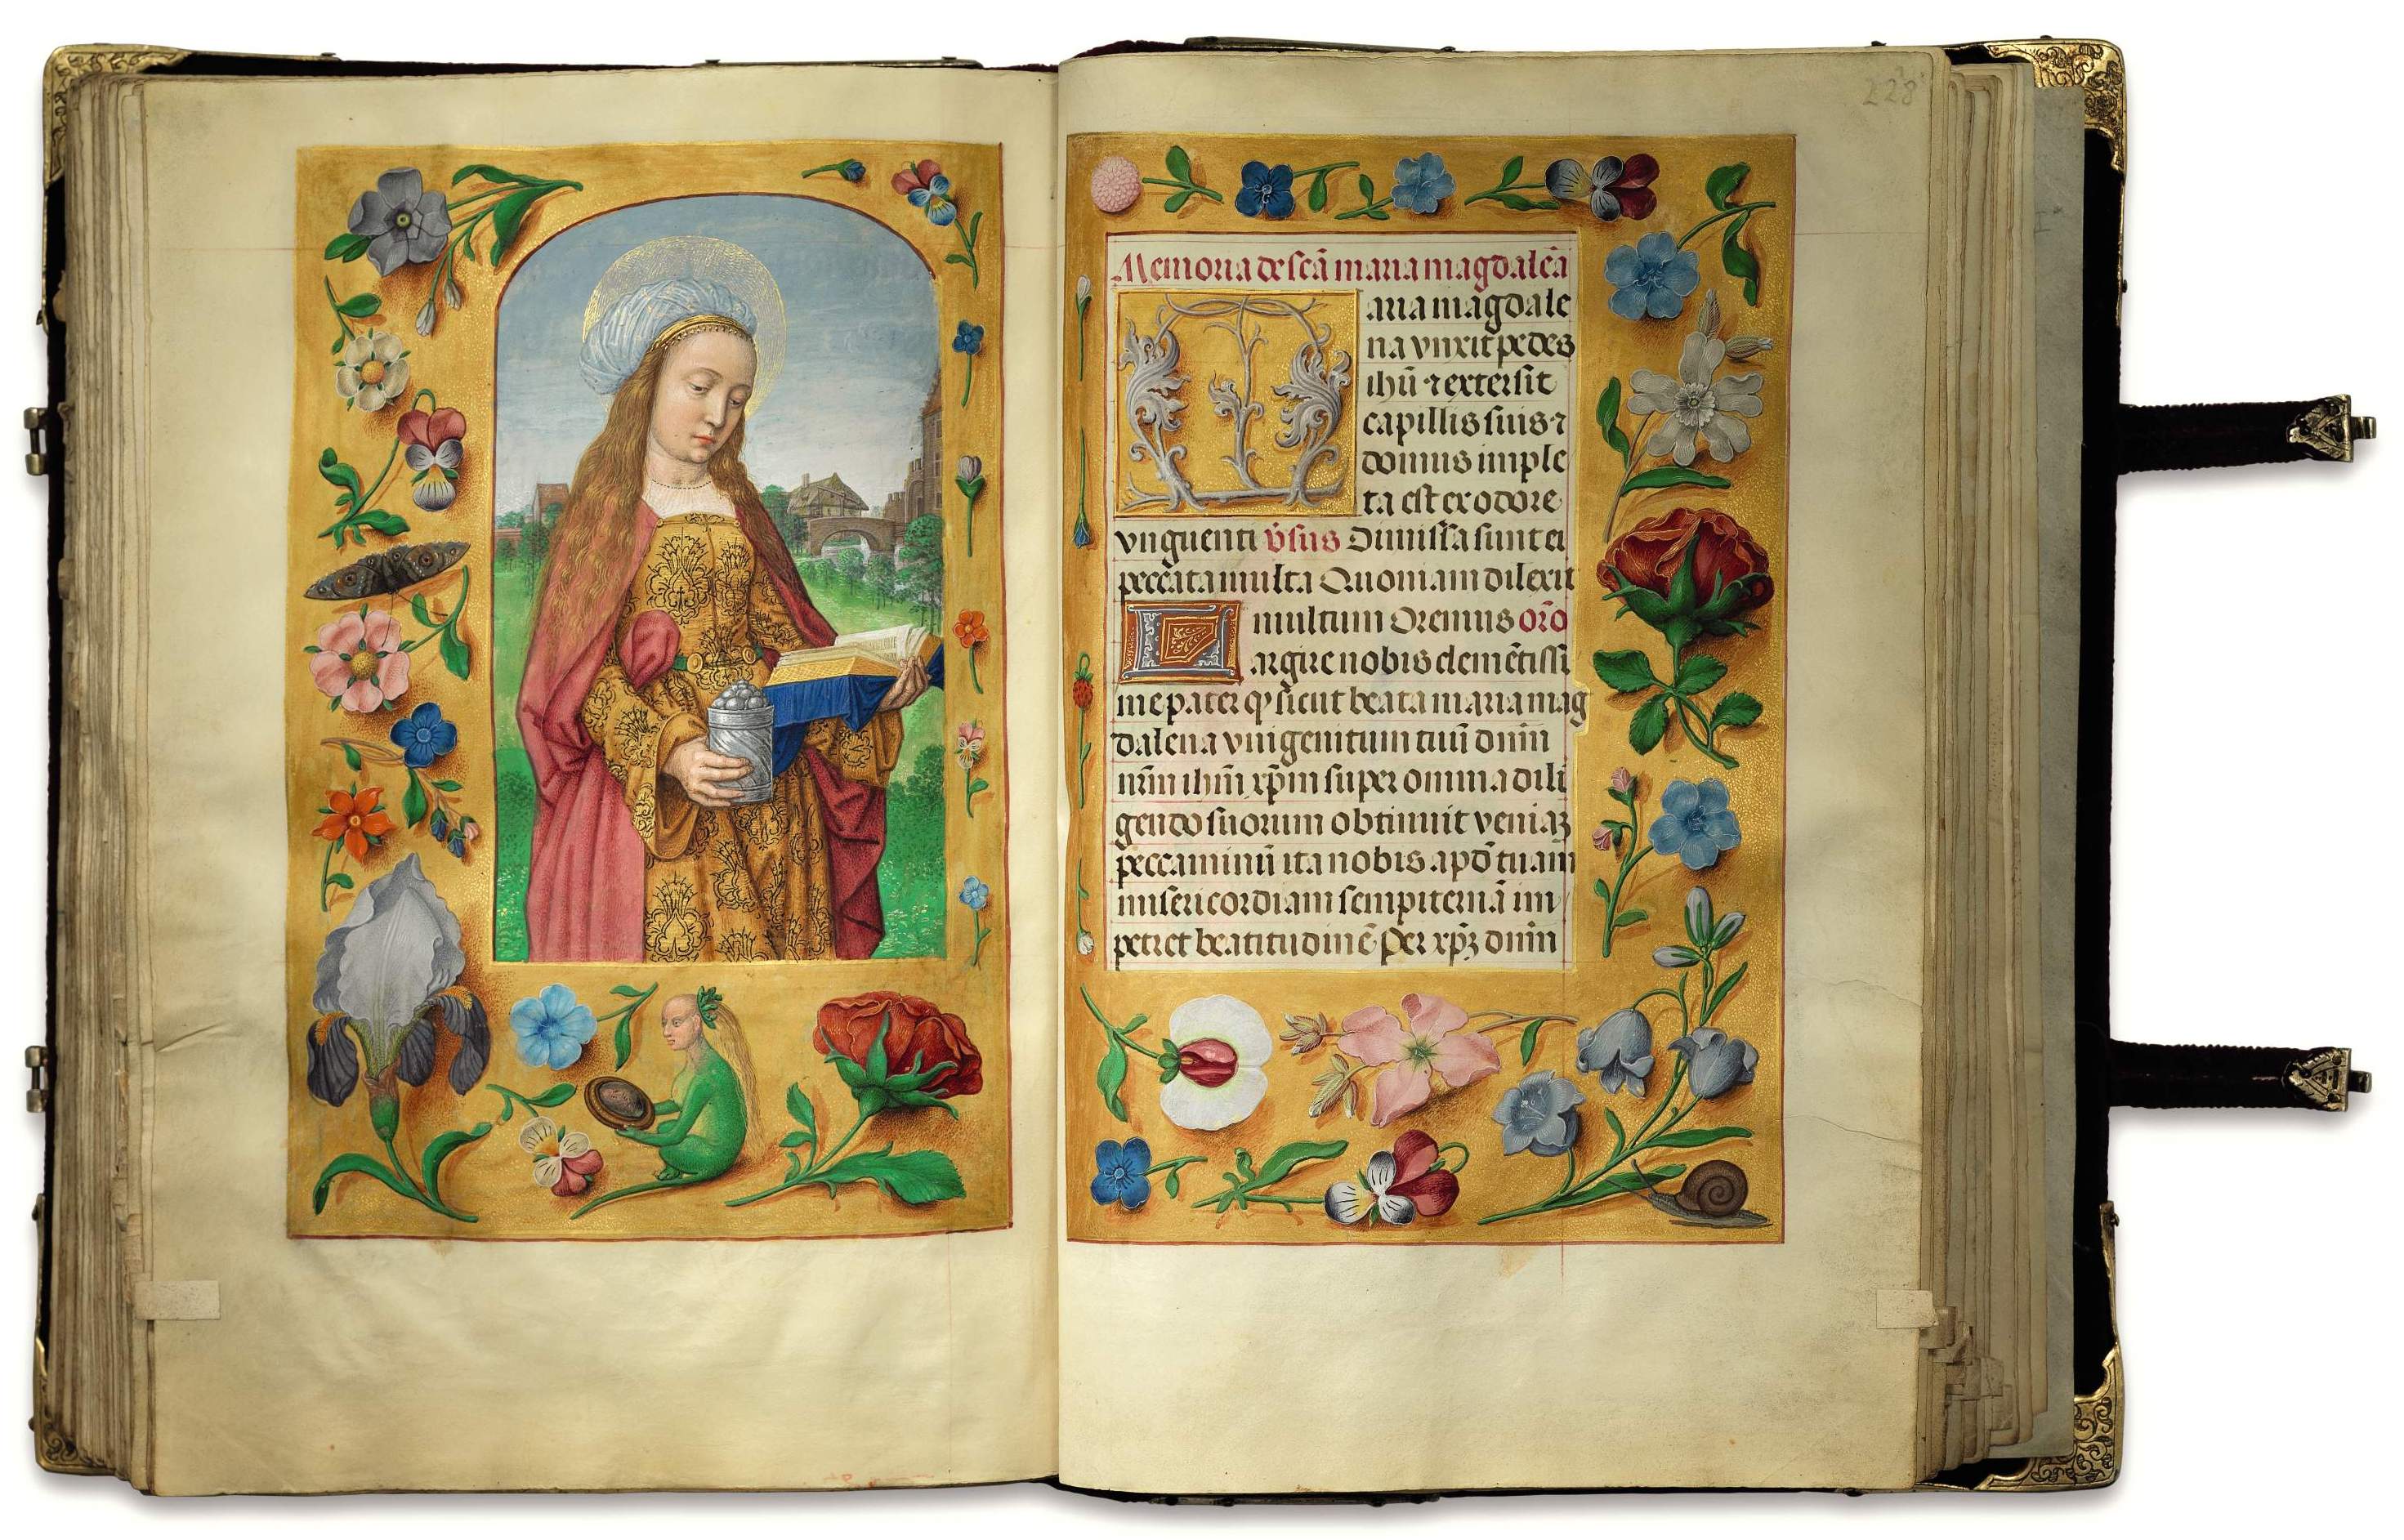 228
Memoria de scā maria magdalēa
Maria magdale
na vnxit pedes
ihū ⁊ extersit
capillis suis ⁊
domus imple
ta est ex odore
vnguenti v̉sus Dimissa sunt ei
peccata multa Quoniam dilexit
multum Oremus orō
Largire nobis clemētissi
me pater ꝙ sicut beata maria mag
dalena vnigenitum tuū dnm̄
nrm̄ ihm̄ xp̄m super omnia dili
gendo suorum obtinuit veniaꝫ
peccaminū ita nobis apd̄ tuam
misericordiam sempiternā im
petret beatitudinē Per xp̄ꝫ dnm̄